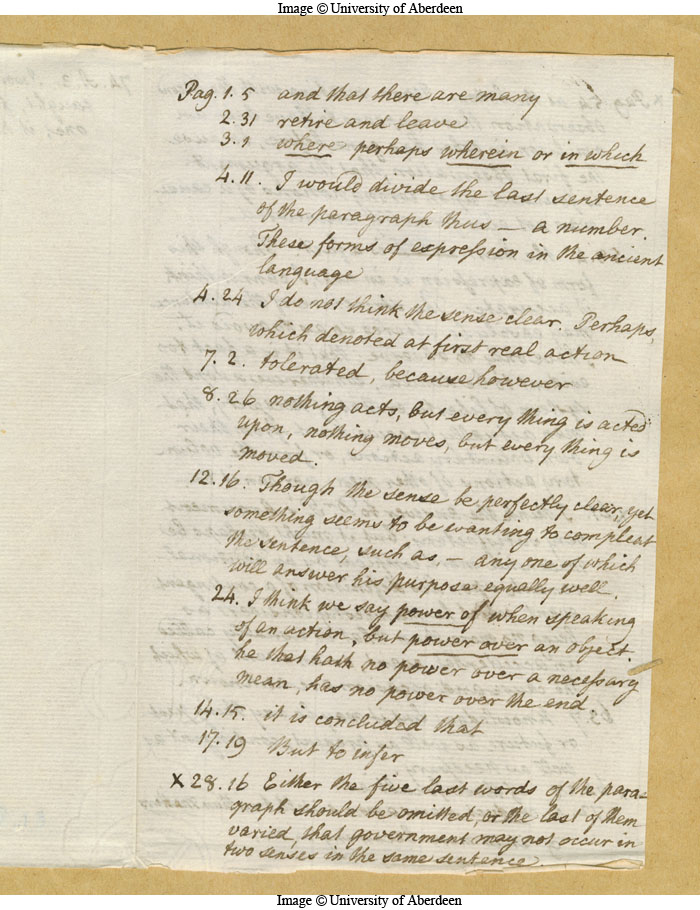 Image © University of Aberdeen
Pag. 1. 5 and that there are many
2. 31 retire and leave
3. 1 where perhaps wherein or in which
4. 11. I would divide the last sentence
of the paragraph thus — a number.
These forms of expression in the ancient
language
4. 24 I do not think the sense clear. Perhaps,
which denoted at first real action
7. 2. tolerated, because however
8. 26 nothing acts, but every thing is acted
upon, nothing moves, but every thing is
moved.
12. 16. Though the sense be perfectly clear, yet
something seems to be wanting to compleat
the sentence, such as, — any one of which
will answer his purpose equally well.
24. I think we say power of when speaking
of an action, but power over an object.
he that hath no power over a necessary
mean, has no power over the end
14. 15. it is concluded that
17. 19 But to infer
x 28. 16 Either the five last words of the para=
graph should be omitted, or the last of them
varied, that government may not occur in
two senses in the same sentence.
Image © University of Aberdeen